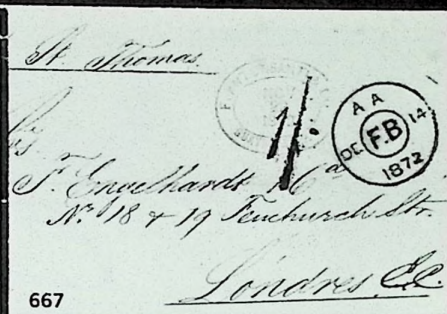 St. Thomas
1/.
A A
DE F.B 14
1872
F. Engelhardt & Ca
No. 18 & 19 Fenchurch Str.
Londres E.C.
667